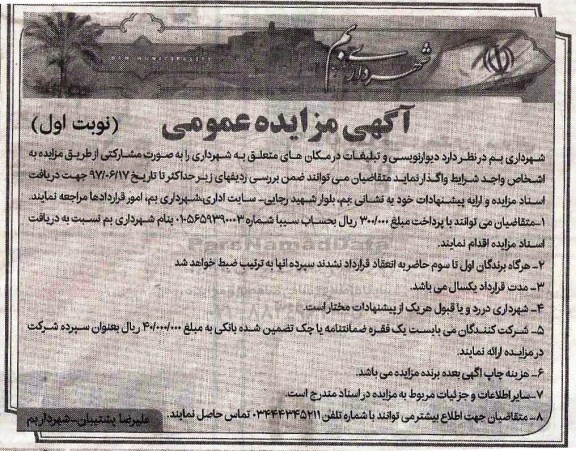 شهرداری بم
BAM MUNICIPALITY
آگهی مزایده عمومی (نوبت اول)
شهرداری بم در نظر دارد دیوارنویسی و تبلیغات در مکان های متعلق به شهرداری را به صورت مشارکتی از طریق مزایده به
اشخاص واجد شرایط واگذار نماید متقاضیان می توانند ضمن بررسی ردیفهای زیر حداکثر تا تاریخ ۹۷/۰۶/۱۷ جهت دریافت
اسناد مزایده و ارایه پیشنهادات خود به نشانی بم، بلوار شهید رجایی- سایت اداری،شهرداری بم، امور قراردادها مراجعه نمایند.
۱-متقاضیان می توانند با پرداخت مبلغ ۳۰۰/۰۰۰ ریال بحساب سیبا شماره ۰۱۰۵۶۵۹۳۹۰۰۰۳ بنام شهرداری بم نسبت به دریافت
اسناد مزایده اقدام نمایند.
۲- هرگاه برندگان اول تا سوم حاضر به انعقاد قرارداد نشدند سپرده آنها به ترتیب ضبط خواهد شد
۳- مدت قرارداد یکسال می باشد.
۴- شهرداری در رد و یا قبول هر یک از پیشنهادات مختار است.
۵- شرکت کنندگان می بایست یک فقره ضمانتنامه یا چک تضمین شده بانکی به مبلغ ۴۰/۰۰۰/۰۰۰ ریال بعنوان سپرده شرکت
در مزایده ارائه نمایند.
۶- هزینه چاپ اگهی بعده برنده مزایده می باشد.
۷-سایر اطلاعات و جزئیات مربوط به مزایده در اسناد مندرج است.
۸- متقاضیان جهت اطلاع بیشتر می توانند با شماره تلفن ۰۳۴۴۴۳۴۵۲۱۱ تماس حاصل نمایند.
علیرضا پشتیبان-شهردار بم
ParsNamadData